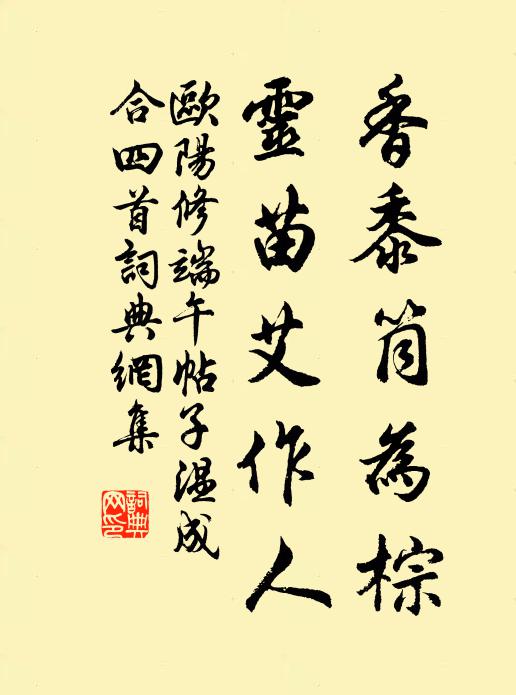 香黍筒為棕
靈苗艾作人
歐陽修端午帖子溫成
合四首詞典網集
詞典
网印